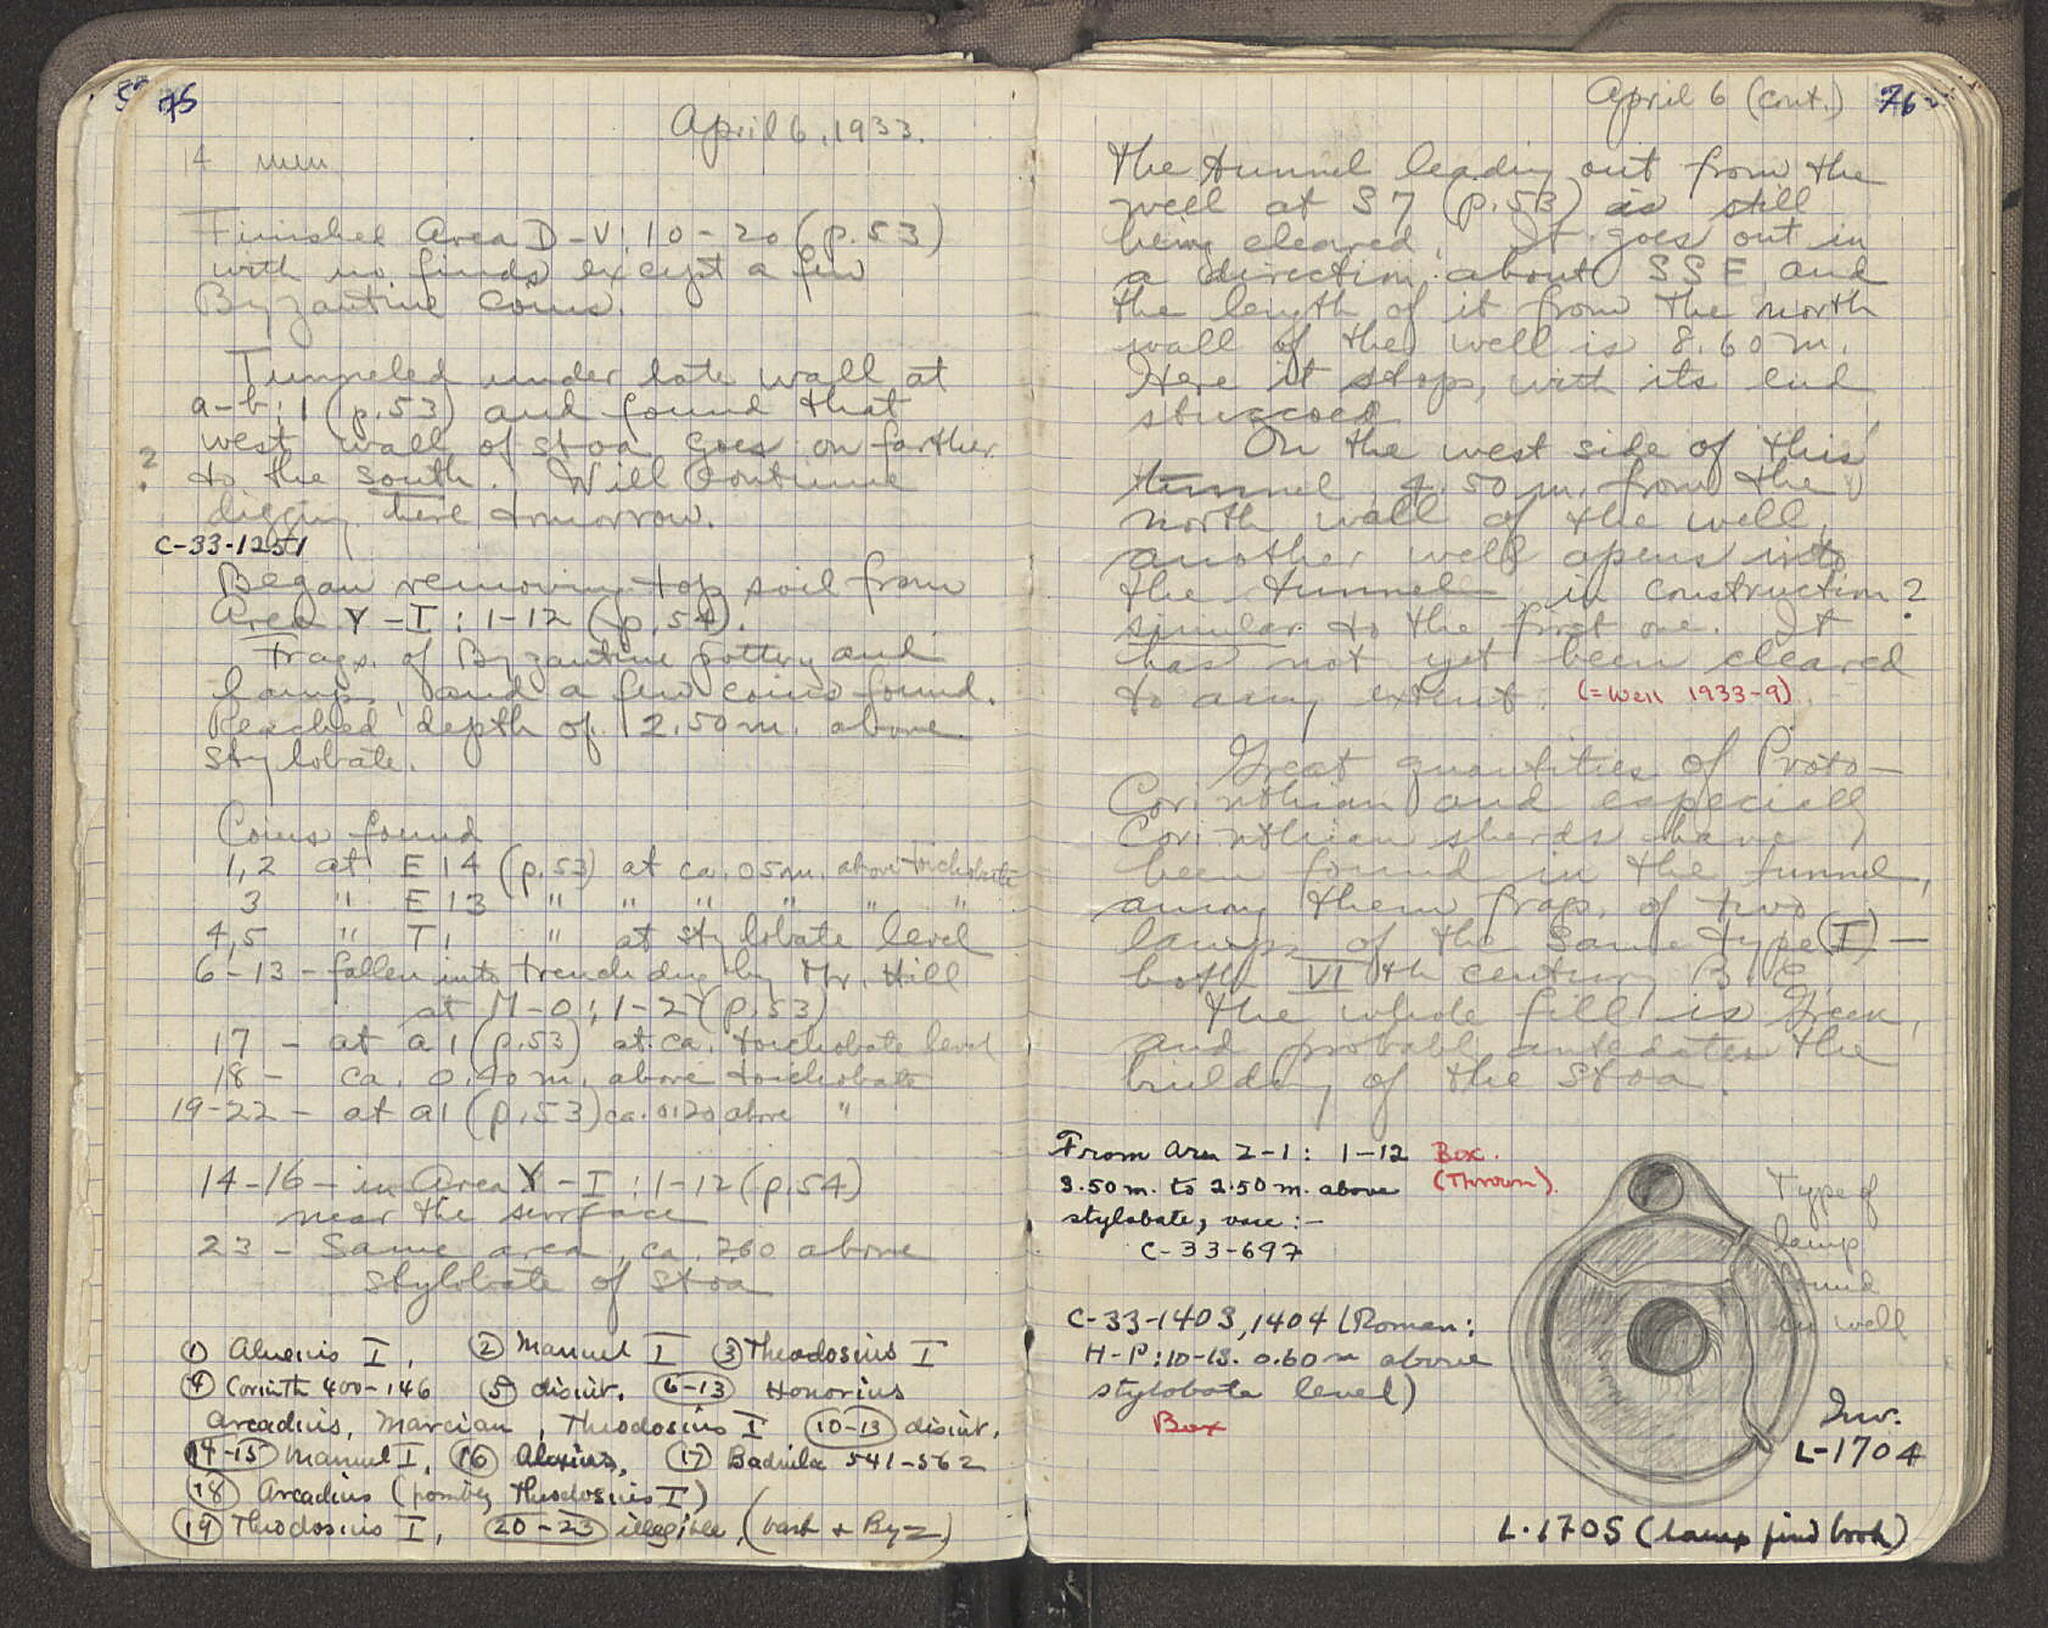 75
April 6, 1933.
14 men
Finished Area D-V: 10-20 (p. 53)
with no finds except a few
Byzantine coins.
Tunneled under late wall at
a-b: 1 (p. 53) and found that
west wall of stoa goes on farther
? to the south. Will continue
digging here tomorrow.
C-33-1251
Began removing top soil from
Area Y-I: 1-12 (p. 54).
Frags. of Byzantine pottery and
lamps, and a few coins found.
Reached depth of 2.50 m. above
stylobate.
Coins found
1,2 at E 14 (p. 53) at ca. 05 m. above toichobate
3 " E 13 " " " " " "
4,5 " T 1 " at stylobate level
6-13 - fallen into trench dug by Mr. Hill
at M-O: 1-2 (p. 53)
17 - at a 1 (p. 53) at ca. toichobate level
18 - ca. 0.40 m. above toichobate
19-22 - at a 1 (p. 53) ca. 0.20 above "
14-16 - in Area Y-I: 1-12 (p. 54)
near the surface
23 - Same area, ca. 2.60 above
stylobate of stoa
① Alexius I, ② Manuel I ③ Theodosius I
④ Corinth 400-146 ⑤ disint. 6-13 Honorius
Arcadius, Marcian, Theodosius I 10-13 disint.
14-15 Manuel I, 16 Alexius, 17 Baduila 541-562
18 Arcadius (possibly Theodosius I)
19 Theodosius I, 20-23 illegible, (Byz)
April 6 (cont.) 76
The tunnel leading out from the
well at S 7 (p. 53) is still
being cleared. It goes out in
a direction about SSE and
the length of it from the north
wall of the well is 8.60 m.
Here it stops, with its end
stuccoed.
On the west side of this
tunnel, 4.50 m. from the
north wall of the well,
another well opens into
the tunnel in construction ?
similar to the first one. It
has not yet been cleared
to any extent. (= Well 1933-9)
Great quantities of Proto-
Corinthian and especially
Corinthian sherds have
been found in the tunnel,
among them frags. of two
lamps of the same type (I) -
both VI th century B.C.
The whole fill is Greek,
and probably antedates the
building of the stoa.
From Area Z-1: 1-12 Box.
3.50 m. to 2.50 m. above (Thrown).
stylobate, vase:-
C-33-697
Type of
lamp
found
in well
C-33-1403, 1404 (Roman:
H-P: 10-13. 0.60 m above
stylobate level)
Box
Inv.
L-1704
L.1705 (lamp find book)